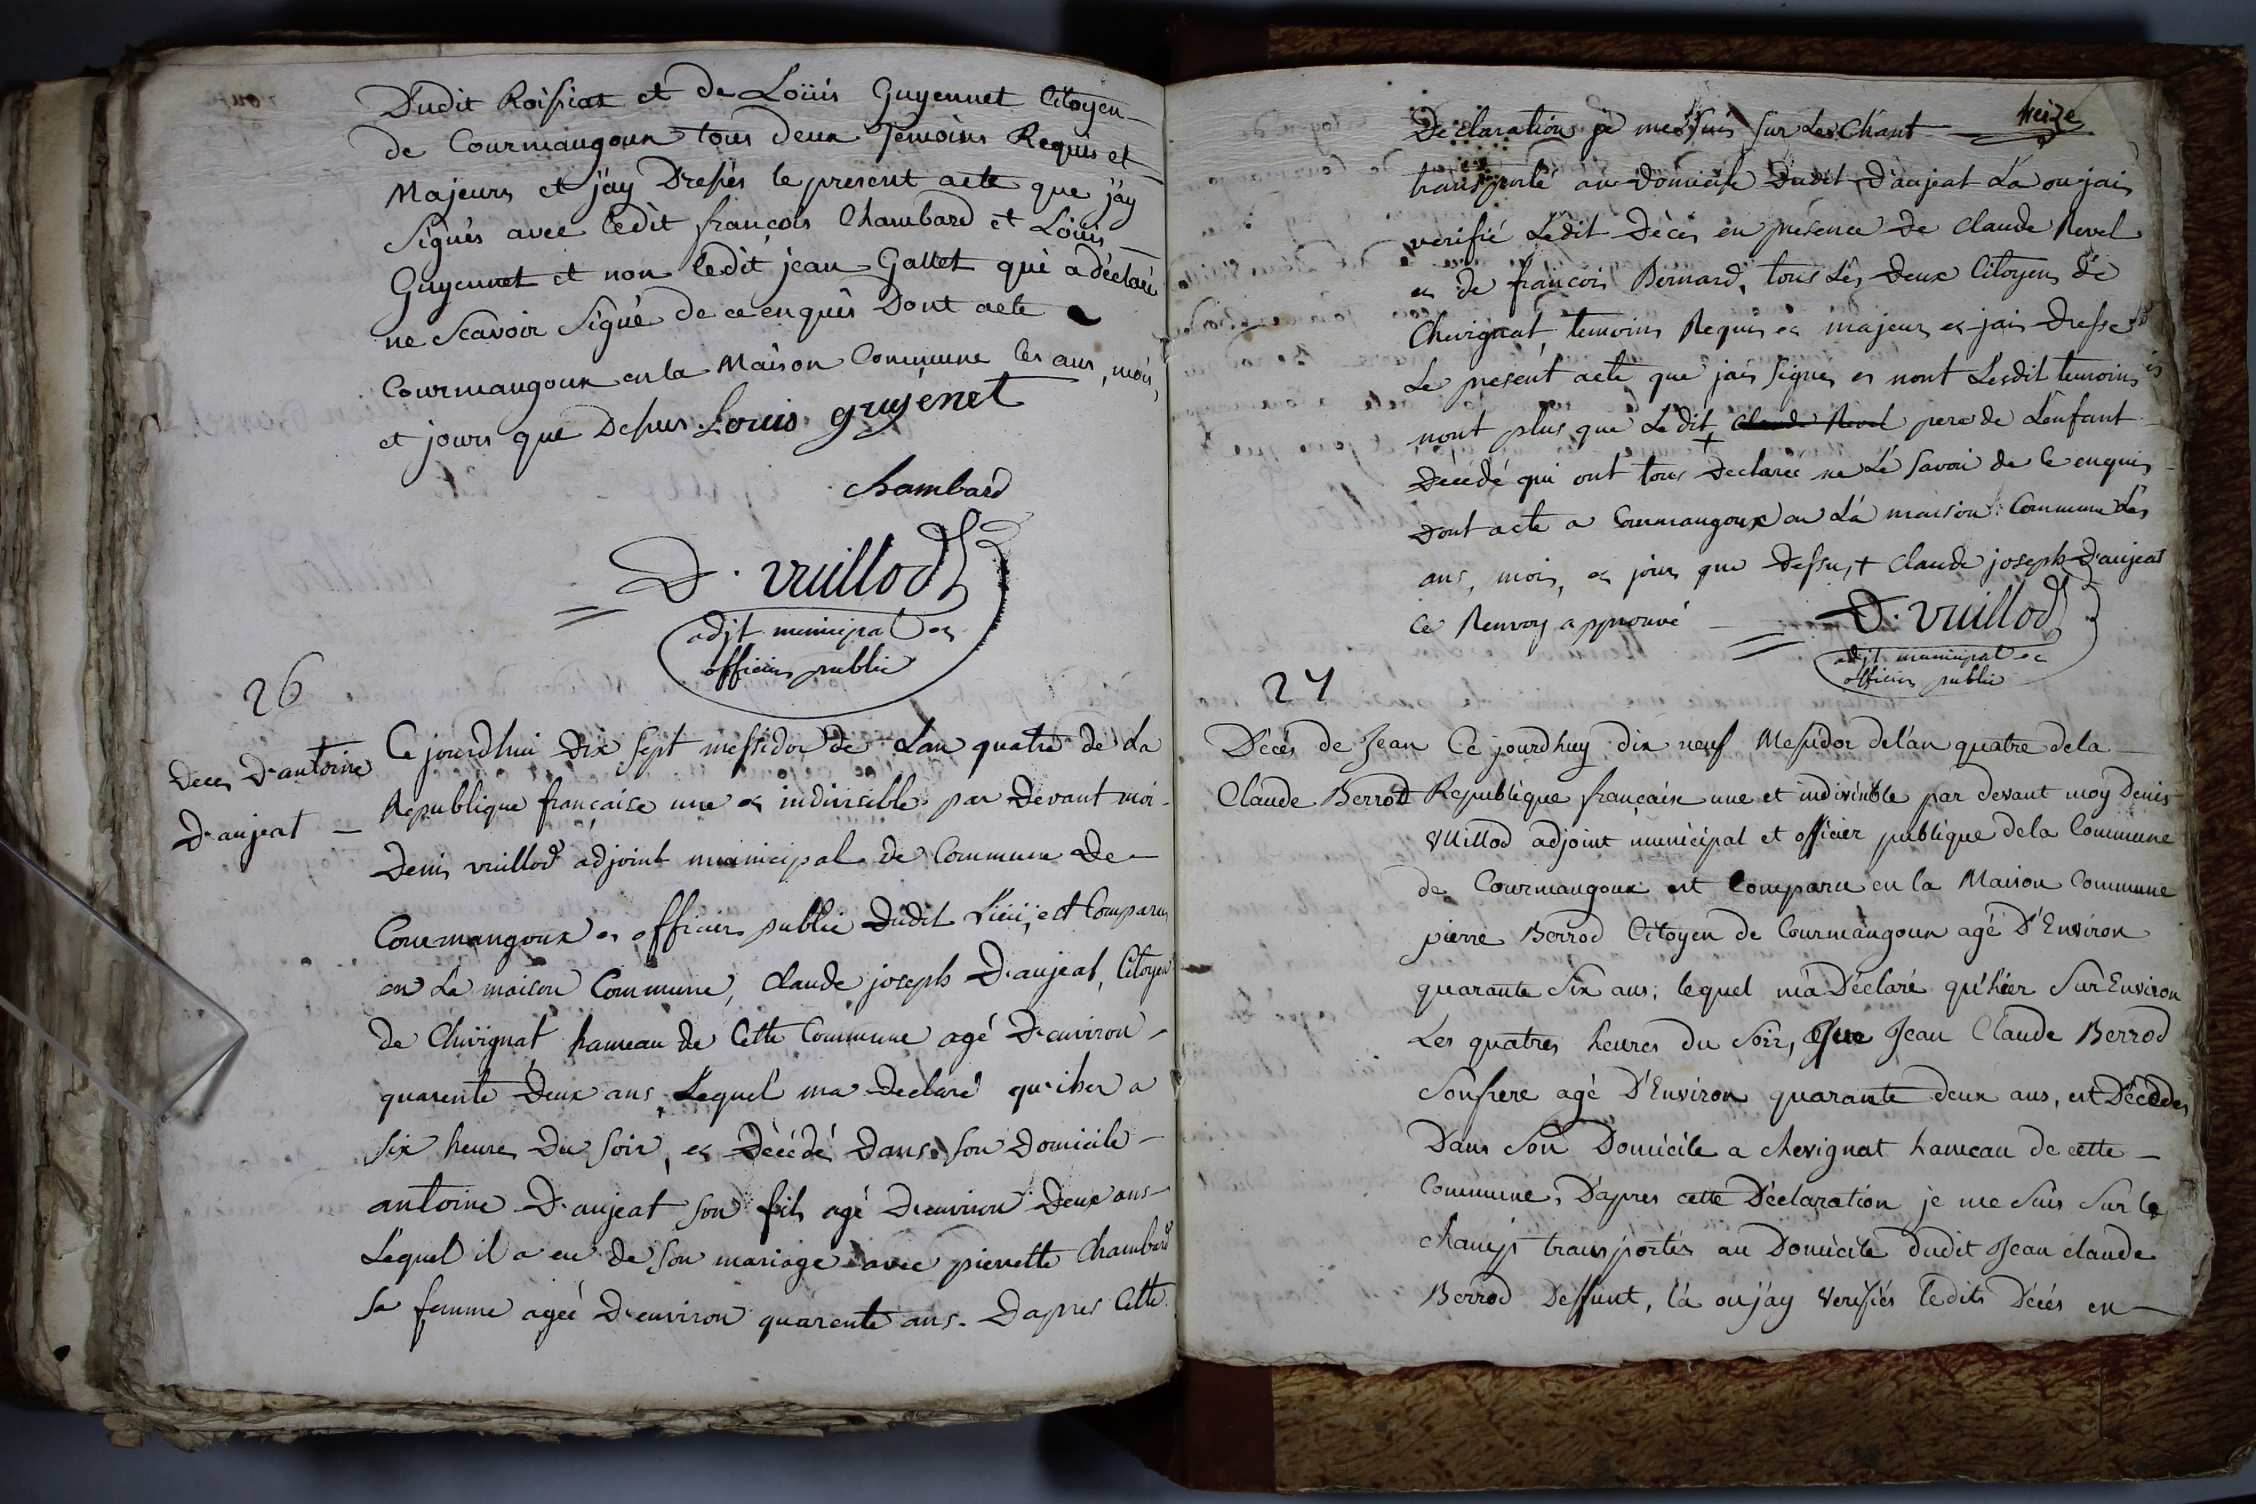 Dudit Roissiat et de Loüis Guyennet Citoyen
de Courmangoux tous deux Temoins Requis et
Majeurs et j'ay Dressés le present acte que j'ay
Signés avec ledit françois Chambard et Loüis
Guyennet et non ledit jean Gallet qui a déclaré
ne Scavoir Signé de ce enquis Dont acte a
Courmangoux en la Maison Commune les ans, mois,
et jours que Dessus. Louis guyenet
Chambard
D. vuillod
adjt municipal et
officier public
26
Deces D'antoine
D'aujeat
Ce jourdhui Dix sept messidor de L'an quatre de La
Republique francaise une et indivisible par Devant moi
Denis vuillod adjoint municipal de Commune De
Courmangoux et officier public Dudit Lieu, est Comparus
en La maison Commune, Claude joseph D'aujeat, Citoyen
de Chivignat hameau de Cette Commune agé D'environ
quarente Deux ans, Lequel ma Declaré qu'iher a
six heure Du soir, et Dècédé Dans son Domicile
antoine D'aujeat son fils agé D'environ Deux ans
Lequel il a eu de son mariage avec pierrette Chambard
sa femme ageé D'environ quarente ans. Dapres Cette
treize
Declaration je me suis sur Le Chant
transporté au Domicile Dudit D'aujeat La ou jais
verifié Ledit Décés en présence De Claude Revel
et de francois Bernard, tous Les Deux Citoyens De
Chivignat, temoins Requis et majeurs et jais Dressé
Le présent acte que jais signes et nont Lesdit temoins
nont plus que Ledit + Claude Revel pere de L'enfant
Décédé qui ont tous Declarée ne Le savoir de Ce enquis
Dont acte a Courmangoux en La maison Commune Les
ans, mois, et jours que Dessus, + Claude joseph D'aujeat
Ce Renvoy approuvé
D. vuillod
adjt municipal et
officier public
27
Décés de Jean
Claude Berrod
Ce jourdhuy dix neuf Messidor de l'an quatre de la
Republique française une et indivisible par devant moy Denis
Vuillod adjoint municipal et officier publique de la Commune
de Courmangoux est Comparu en la Maison Commune
pierre Berrod Citoyen de Courmangoux agé D'Environ
quarante Six ans, lequel m'a Déclaré qu'hier Sur Environ
Les quatres heures du Soir, Que Jean Claude Berrod
Son frere agé D'Environ quarante deux ans, est Décédés
Dans Son Domicile a chevignat hameau de cette
Commune, D'apres cette Déclaration je me Suis Sur le
champs transportés au Domicile dudit Jean claude
Berrod Deffunt, là ou j'ay Verifiés ledits Décés en